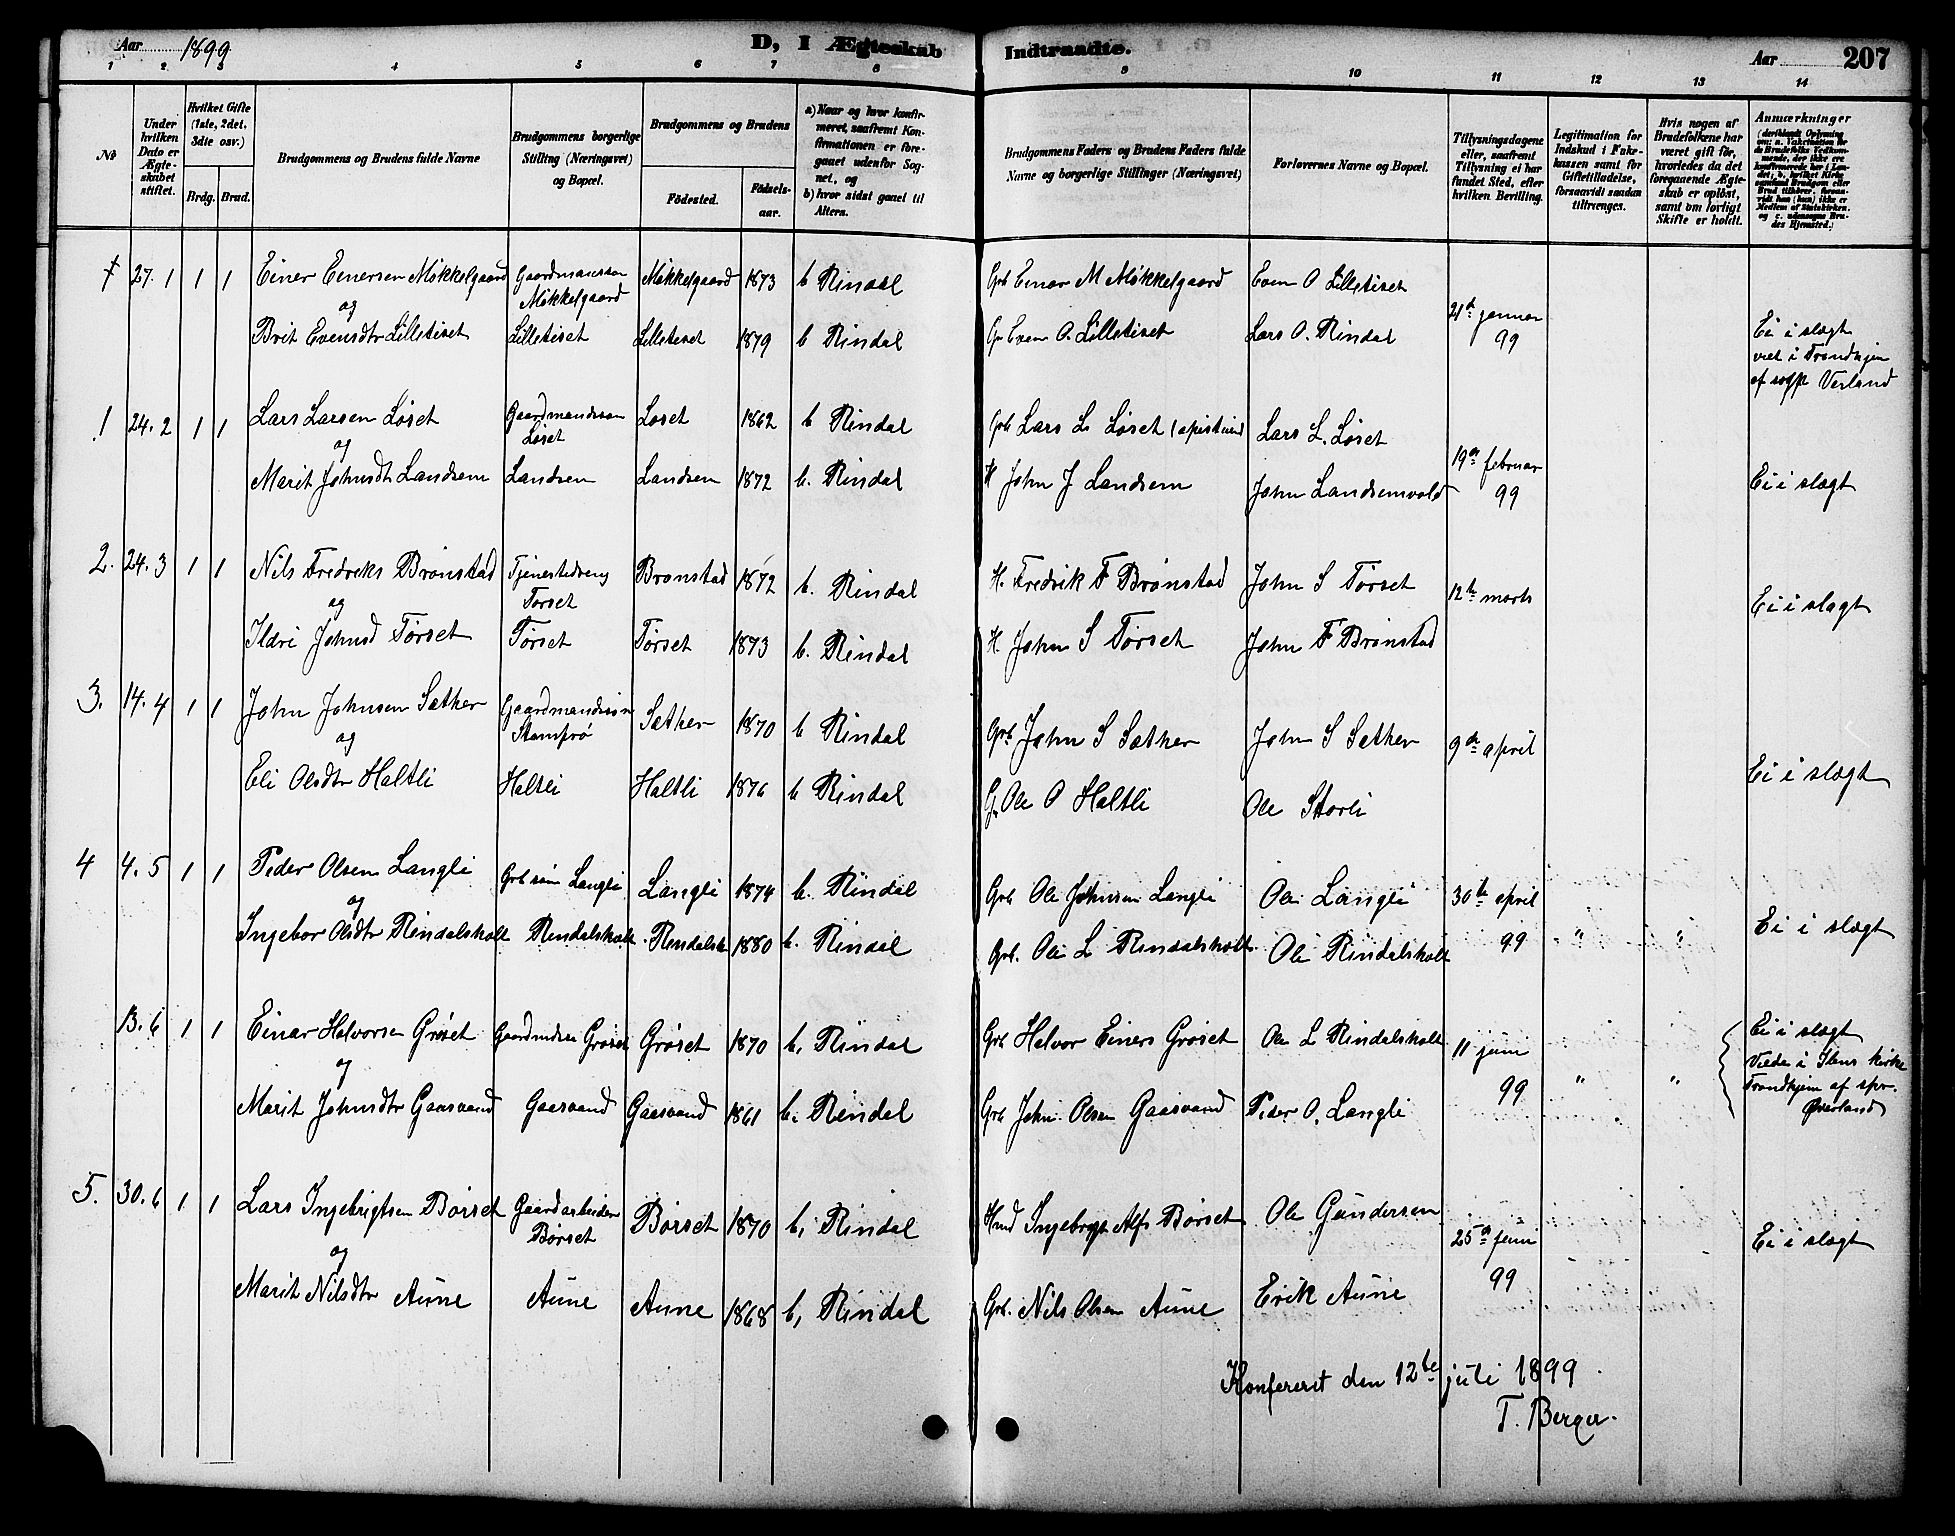 Aar 1899 D, I Ægteskab Indtraadte. Aar 207
1 2 3 4 5 6 7 8 9 10 11 12 13 14
No
Under hvilken Dato er Ægteskabet stiftet.
Hvilket Gifte (1ste, 2det, 3die osv.)
Brdg. Brud.
Brudgommens og Brudens fulde Navne
Brudgommens borgerlige Stilling (Næringsvei) og Bopæl.
Brudgommens og Brudens
Födested. Födsels-aar.
a) Naar og hvor konfirmeret, saafremt Konfirmationen er foregaaet udenfor Sognet, og
b) hvor sidst gaaet til Alters.
Brudgommens Faders og Brudens Faders fulde Navne og borgerlige Stillinger (Næringsvei)
Forlovernes Navne og Bopæl.
Tillysningsdagene eller, saafremt Tillysning ei har fundet Sted, efter hvilken Bevilling.
Legitimation for Indskud i Fakekassen samt for Giftetilladelse, forsaavidt saadan tiltrænges.
Hvis nogen af Brudefolkene har været gift før, hvorledes da det foregaaende Ægteskab er opløst, samt om lovligt Skifte er holdt.
Anmærkninger
27. 1 1 1 Einer Einersen Møkkelgaard Gaardmandssøn Møkkelgaard Møkkelgaard 1873 b Rindal Grb Einar M Møkkelgaard Even O Lilletiset 21de januar 99
og
Brit Evensdtr Lilletiset Lilletiset Lilletiset 1879 b Rindal Even O. Lilletiset Lars O. Rindal Ei i slægt
viet i Trondhjem
1 24. 2 1 1 Lars Larsen Løset Gaardmandssøn Løset Løset 1862 b Rindal Grb Lars L. Løset Lars L. Løset 19de februar 99
og
Marit Johnsdt Landsem Landsem Landsem 1872 b. Rindal H John J Landsem John Landsemvold Ei i slægt
2. 24. 3 1 1 Nils Fredriks Brønstad Tjenestedreng Tørset Brønstad 1872 b. Rindal H. Fredrik F Brønstad John S Tørset 12te marts Ei i slægt
og
Ildri Johnsd Tørset Tørset Tørset 1873 b. Rindal H. John S Tørset John F Brønstad
3. 14. 4 1 1 John Johnsen Sæther Gaardmandssøn Sæther 1870 b Rindal Grb John S Sæther John S Sæther 9de april
og
Eli Olsdtr Haltli Haltli Haltli 1876 b Rindal Ole O Haltli Ole Storli Ei i slægt
4 4. 5 1 1 Peder Olsen Langli Grb søn Langli Langli 1874 b. Rindal Grb Ole Johnsen Langli Ole Langli 30te april 99
og
Ingebor Olsdtr Rindalsholt Rindalsholt Rindalsh 1880 b. Rindal Grb. Ole L Rindalsholt Ole Rindalsholt " " Ei i slægt
13. 6 1 1 Einar Halvorsen Grøset Grøset Grøset 1870 b. Rindal Grb Halvor Einers Grøset Ole L Rindalsholt 11 juni 99 Ei i slægt
og
Marit Johnsdtr Gaasvand Gaasvand Gaasvand 1861 b. Rindal Grb John Olsen Gaasvand Peder O. Langli " " Viede i Ilens kirke
Trondhjem af spr.
Øverland
5. 30. 6 1 1 Lars Ingebrigtsen Børset Gaardarbeider Børset Børset 1870 b. Rindal Hmd Ingebrigt Alfs Børset Ole Gundersen 25de juni 99 Ei i slægt
og
Marit Nilsdtr Aune Aune Aune 1868 b. Rindal Grb. Nils Olsen Aune Erik Aune
Konfereret den 12te juli 1899
T. Berger.